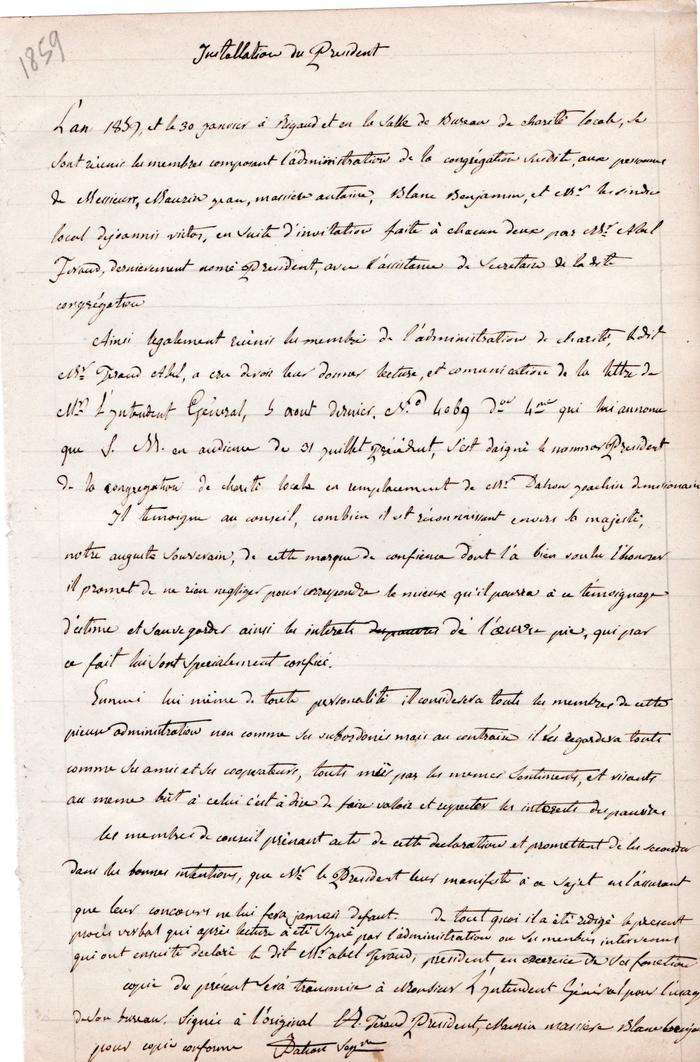 1859
Installation du President
L'an 1859, et le 30 janvier à Rigaud et en la salle de Bureau de charité locale, se
sont réunis les membres composant l'administration de la congrégation susdite, aux personnes
de Messieurs, Maurin jean, massiera antoine, Blanc Benjamin, et Mr le sindic
local dejoannis victor, en suite d'invitation faite à chacun deux par Mr Abel
Feraud, dernierement nomé President, avec l'assistance de Secretaire de la dite
congrégation
Ainsi legalement reunis les membre de l'administration de charité, ledit
Mr Feraud Abel, a cru devoir leur donner lecture, et comunication de la lettre de
Mr L'Intendent Général, 5 aout dernier, No 4069 qui lui annonce
que S. M. en audience de 31 juillet précédent, s'est daigné le nommer President
de la congregation de charité locale en remplacement de Mr Dahon joachim demisionaire
Il temoigne au conseil, combien il est réconnaissant envers sa majesté,
notre auguste Souverain, de cette marque de confience dont l'à bien voulu l'honorer
il promet de ne rien negliger pour correspondre le mieux qu'il pourra à ce témoignage
d'estime et sauvegarder ainsi les interets des pauvres de l'œuvre pie, qui par
ce fait lui sont specialement confiés.
Ennemi lui même de toute personalité il considerera touts les membres de cette
pieuse administration non comme ses subordonés mais au contraire il les regardera touts
comme ses amis et ses cooperateurs, touts par les memes sentiments, et visants
au meme bût à celui c'est à dire de faire valoir et repecter les interets des pauvres
les membres de conseil prénant acte de cette declaration et promettent de les seconder
dans les bonnes intentions, que Mr le President leur manifeste à ce sujet en l'assurant
que leur concours ne lui fera jamais defaut. De tout quoi il a été redigé le present
procès verbal qui après lecture a été signé par l'administration ou ses membres intervenus
qui ont ensuite declaré le dit Mr abel Feraud, president en exercice de ses fonction
copie du présent sera transmise à Monsieur L'Intendent Général pour l'usage
de son bureau. Signés à l'original A. Feraud President, Maurin massiera Blanc
pour copie conforme Dahon